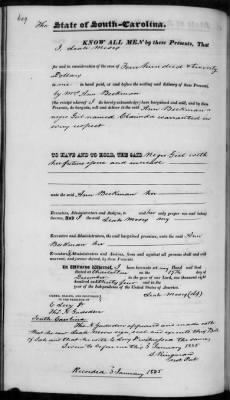 The State of South-Carolina.
KNOW ALL MEN by these Presents, That
I
for and in consideration of the sum of Four hundred & twenty
Dollars
to me in hand paid, at and before the sealing and delivery of these Presents,
by Mrs Ann Beekman
(the receipt whereof I do hereby acknowledge) have bargained and sold, and by these
Presents, do bargain, sell and deliver to the said Ann Beekman a
negro Girl named warranted in
every respect
TO HAVE AND TO HOLD, THE SAID Negro Girl with
her future issue and increase
unto the said Ann Beekman her
Executors, Administrators and Assigns, to her only proper use and behoof,
forever. And I the said my
Executors and Administrators, the said bargained premises, unto the said Ann
Beekman her
Executors, Administrators and Assigns, from and against all persons shall and will
warrant, and forever defend, by these Presents.
In Witness Whereof, I have hereunto set my Hand and
Seal Dated at Charleston on the 17th day of
December in the year of our Lord, one thousand eight
hundred and thirty four and in the
year of the Independence of the United States of America.
SIGNED, SEALED, AND DELIVERED
IN THE PRESENCE OF
Thos. N. Gadsden
South Carolina
Thos N Gadsden appeared and made oath
that he saw sign, seal and this Bill
of Sale and that he with witnessed the same.
Sworn to before me this 5 January 1835
Recorded 5 January 1835